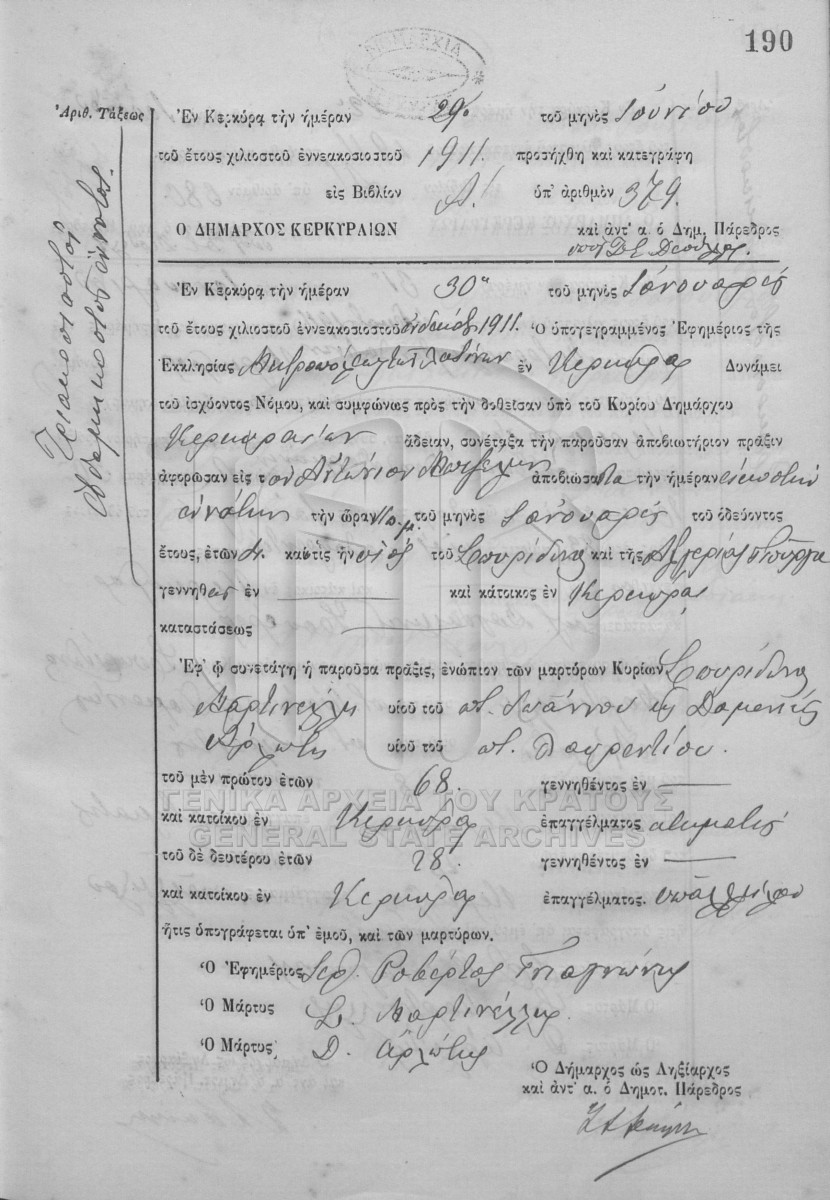 190
ΔΗΜΑΡΧΙΑ
Ἀριθ. Τάξεως
Τριακοστὸς
ἑβδομηκοστὸς ἔννατος.
Ἐν Κερκύρᾳ τὴν ἡμέραν 29. τοῦ μηνὸς Ἰουνίου
τοῦ ἔτους χιλιοστοῦ ἐννεακοσιοστοῦ 1911. προσήχθη καὶ κατεγράφη
εἰς Βιβλίον Α! ὑπ' ἀριθμὸν 379.
Ο ΔΗΜΑΡΧΟΣ ΚΕΡΚΥΡΑΙΩΝ καὶ ἀντ' α. ὁ Δημ. Πάρεδρος
Ἐν Κερκύρᾳ τὴν ἡμέραν 30ην τοῦ μηνὸς Ἰανουαρίου
τοῦ ἔτους χιλιοστοῦ ἐννεακοσιοστοῦ ἑνδεκάτου 1911. Ὁ ὑπογεγραμμένος Ἐφημέριος τῆς
Ἐκκλησίας Μητροπόλεως Λατίνων ἐν Κερκύρᾳ Δυνάμει
τοῦ ἰσχύοντος Νόμου, καὶ συμφώνως πρὸς τὴν δοθεῖσαν ὑπὸ τοῦ Κυρίου Δημάρχου
Κερκυραίων ἄδειαν, συνέταξα τὴν παροῦσαν ἀποβιωτήριον πρᾶξιν
ἀφορῶσαν εἰς τὸν Ἀντώνιον ἀποβιώσαντα τὴν ἡμέραν εἰκοστὴν
ἐννάτην τὴν ὥραν π.μ. τοῦ μηνὸς Ἰανουαρίου τοῦ ὁδεύοντος
ἔτους, ἐτῶν 4. καὶ ὅστις ἦν υἱὸς τοῦ Σπυρίδωνα καὶ τῆς
γεννηθεὶς ἐν — καὶ κάτοικος ἐν Κερκύρᾳ
καταστάσεως —
Ἐφ' ᾧ συνετάγη ἡ παροῦσα πρᾶξις, ἐνώπιον τῶν μαρτύρων Κυρίων Σπυρίδωνα
Μαρτινέλλη υἱοῦ τοῦ ποτ. Ἰωάννου καὶ Δομενίκ
Ἀρλώτη υἱοῦ τοῦ ποτ. Λαυρεντίου.
τοῦ μὲν πρώτου ἐτῶν 68. γεννηθέντος ἐν —
καὶ κατοίκου ἐν Κερκύρᾳ ἐπαγγέλματος κτηματίας
τοῦ δὲ δευτέρου ἐτῶν 28. γεννηθέντος ἐν —
καὶ κατοίκου ἐν Κερκύρᾳ ἐπαγγέλματος. ὑπάλληλου
ἥτις ὑπογράφεται ὑπ' ἐμοῦ, καὶ τῶν μαρτύρων.
Ὁ Ἐφημέριος Ροβέρτος
Ὁ Μάρτυς Σ. Μαρτινέλλης
Ὁ Μάρτυς Δ. Ἀρλώτης
Ὁ Δήμαρχος ὡς Ληξίαρχος
καὶ ἀντ' α. ὁ Δημοτ. Πάρεδρος
ΓΕΝΙΚΑ ΑΡΧΕΙΑ ΤΟΥ ΚΡΑΤΟΥΣ
GENERAL STATE ARCHIVES